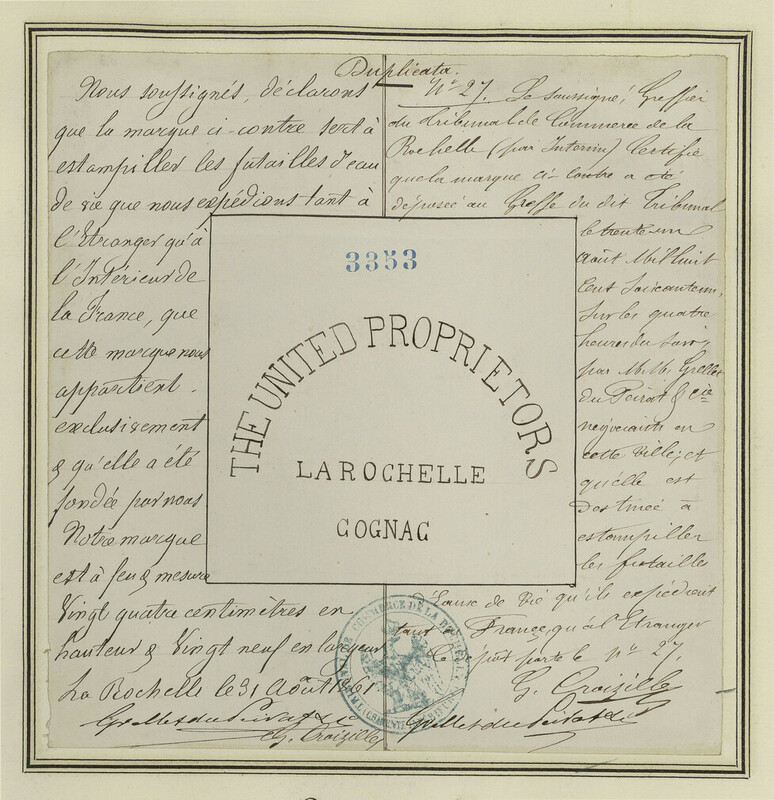 Duplicata.
Nous soussignés, déclarons
que la marque ci-contre sert à
estampiller les futailles d'eau
de vie que nous expédions tant à
l'Etranger qu'à
l'Intérieur de
la France, que
cette marque nous
appartient
exclusivement
& qu'elle a été
fondée par nous
Notre marque
est à feu & mesure
Vingt quatre centimètres en
hauteur & Vingt neuf en largeur
La Rochelle le 31 Août 1861
G. Croizille
3353
THE UNITED PROPRIETORS
LA ROCHELLE
COGNAC
N° 27. Le soussigné, Greffier
du Tribunal de Commerce de la
Rochelle (par Interim) Certifie
que la marque ci-contre a été
déposée au Greffe du dit Tribunal
le trente-un
Août Mil huit
Cent Soixante un,
Sur les quatre
heures du Soir,
par MM. Grellet
du Peirat & Cie
négociants en
cette Ville; et
qu'elle est
destinée à
estampiller
les futailles
d'eau de Vie qu'ils expédient
tant France, qu'à l'Etranger
Ce dépot porte le N° 27.
G. Croizille
COMMERCE DE LA ROCHELLE